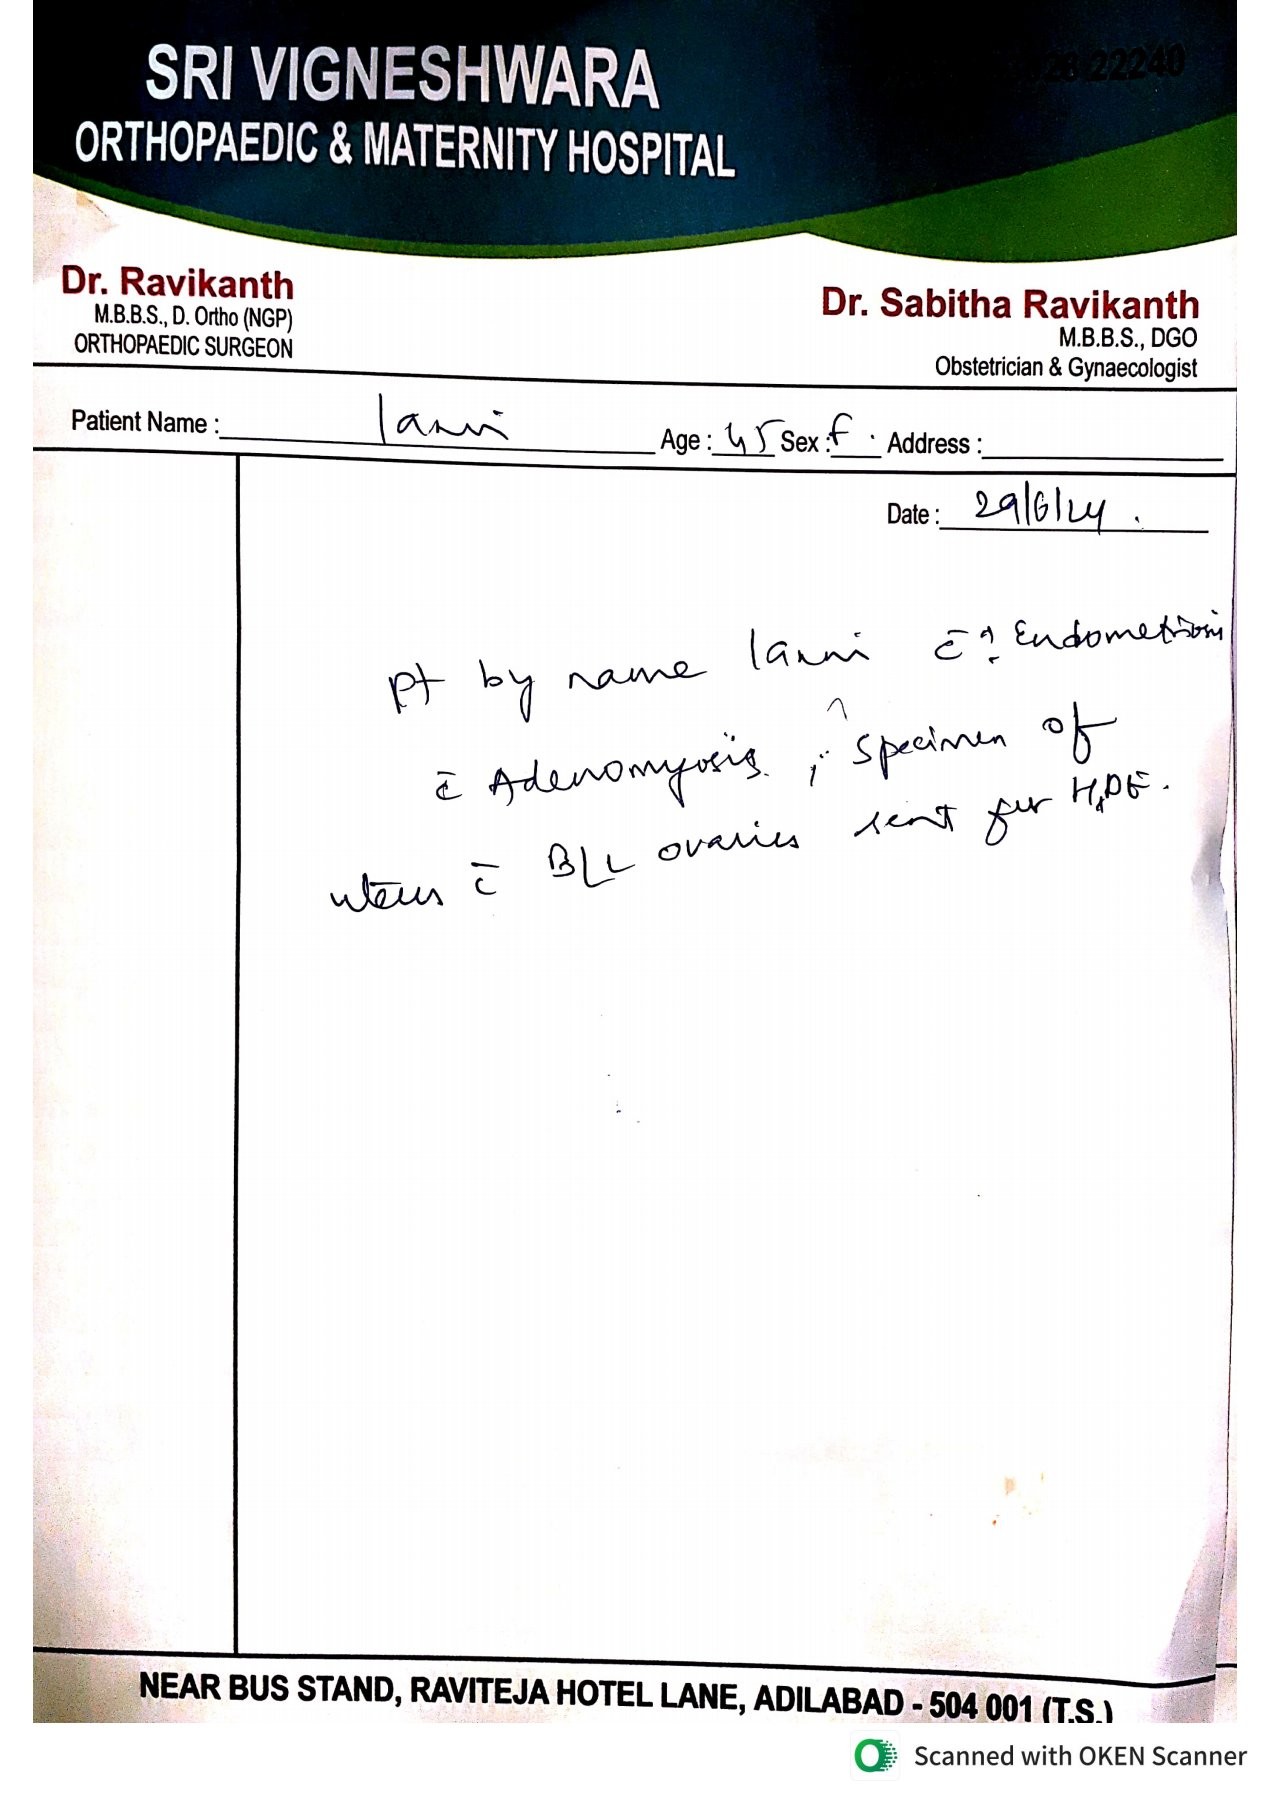 28 22240
SRI VIGNESHWARA
ORTHOPAEDIC & MATERNITY HOSPITAL
Dr. Ravikanth
M.B.B.S., D. Ortho (NGP)
ORTHOPAEDIC SURGEON
Dr. Sabitha Ravikanth
M.B.B.S., DGO
Obstetrician & Gynaecologist
Patient Name : Age : 45 Sex : f . Address :
Date : 29/6/24 .
pt by name c̄ ? Endometriosis
c̄ Adenomyosis. ; Specimen of
uterus c̄ B/L ovaries sent for HPE.
NEAR BUS STAND, RAVITEJA HOTEL LANE, ADILABAD - 504 001 (T.S.)
Scanned with OKEN Scanner